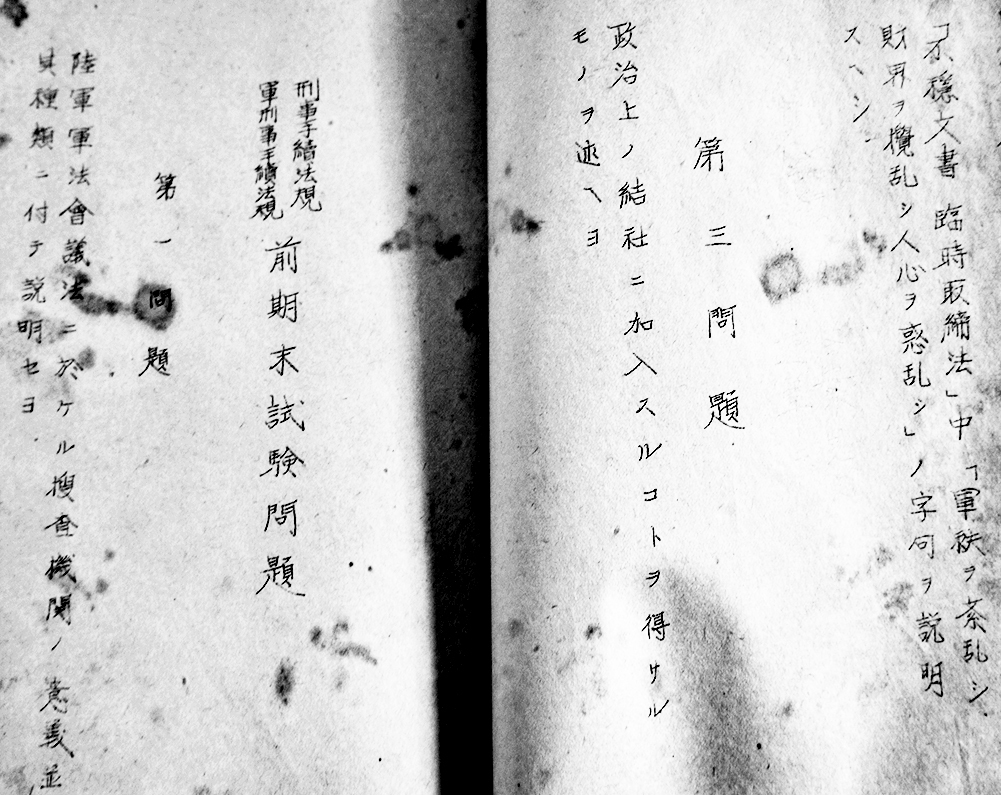 「不穏文書臨時取締法」中「軍秩ヲ紊乱シ
財界ヲ攪乱シ人心ヲ惑乱シ」ノ字句ヲ説明
スヘシ
第三問題
政治上ノ結社ニ加入スルコトヲ得サル
モノヲ述ヘヨ
刑事手續法規
軍刑事手續法規
前期末試験問題
第一問題
陸軍軍法會議法ニ於ケル搜査機関ノ意義並
其種類ニ付テ説明セヨ